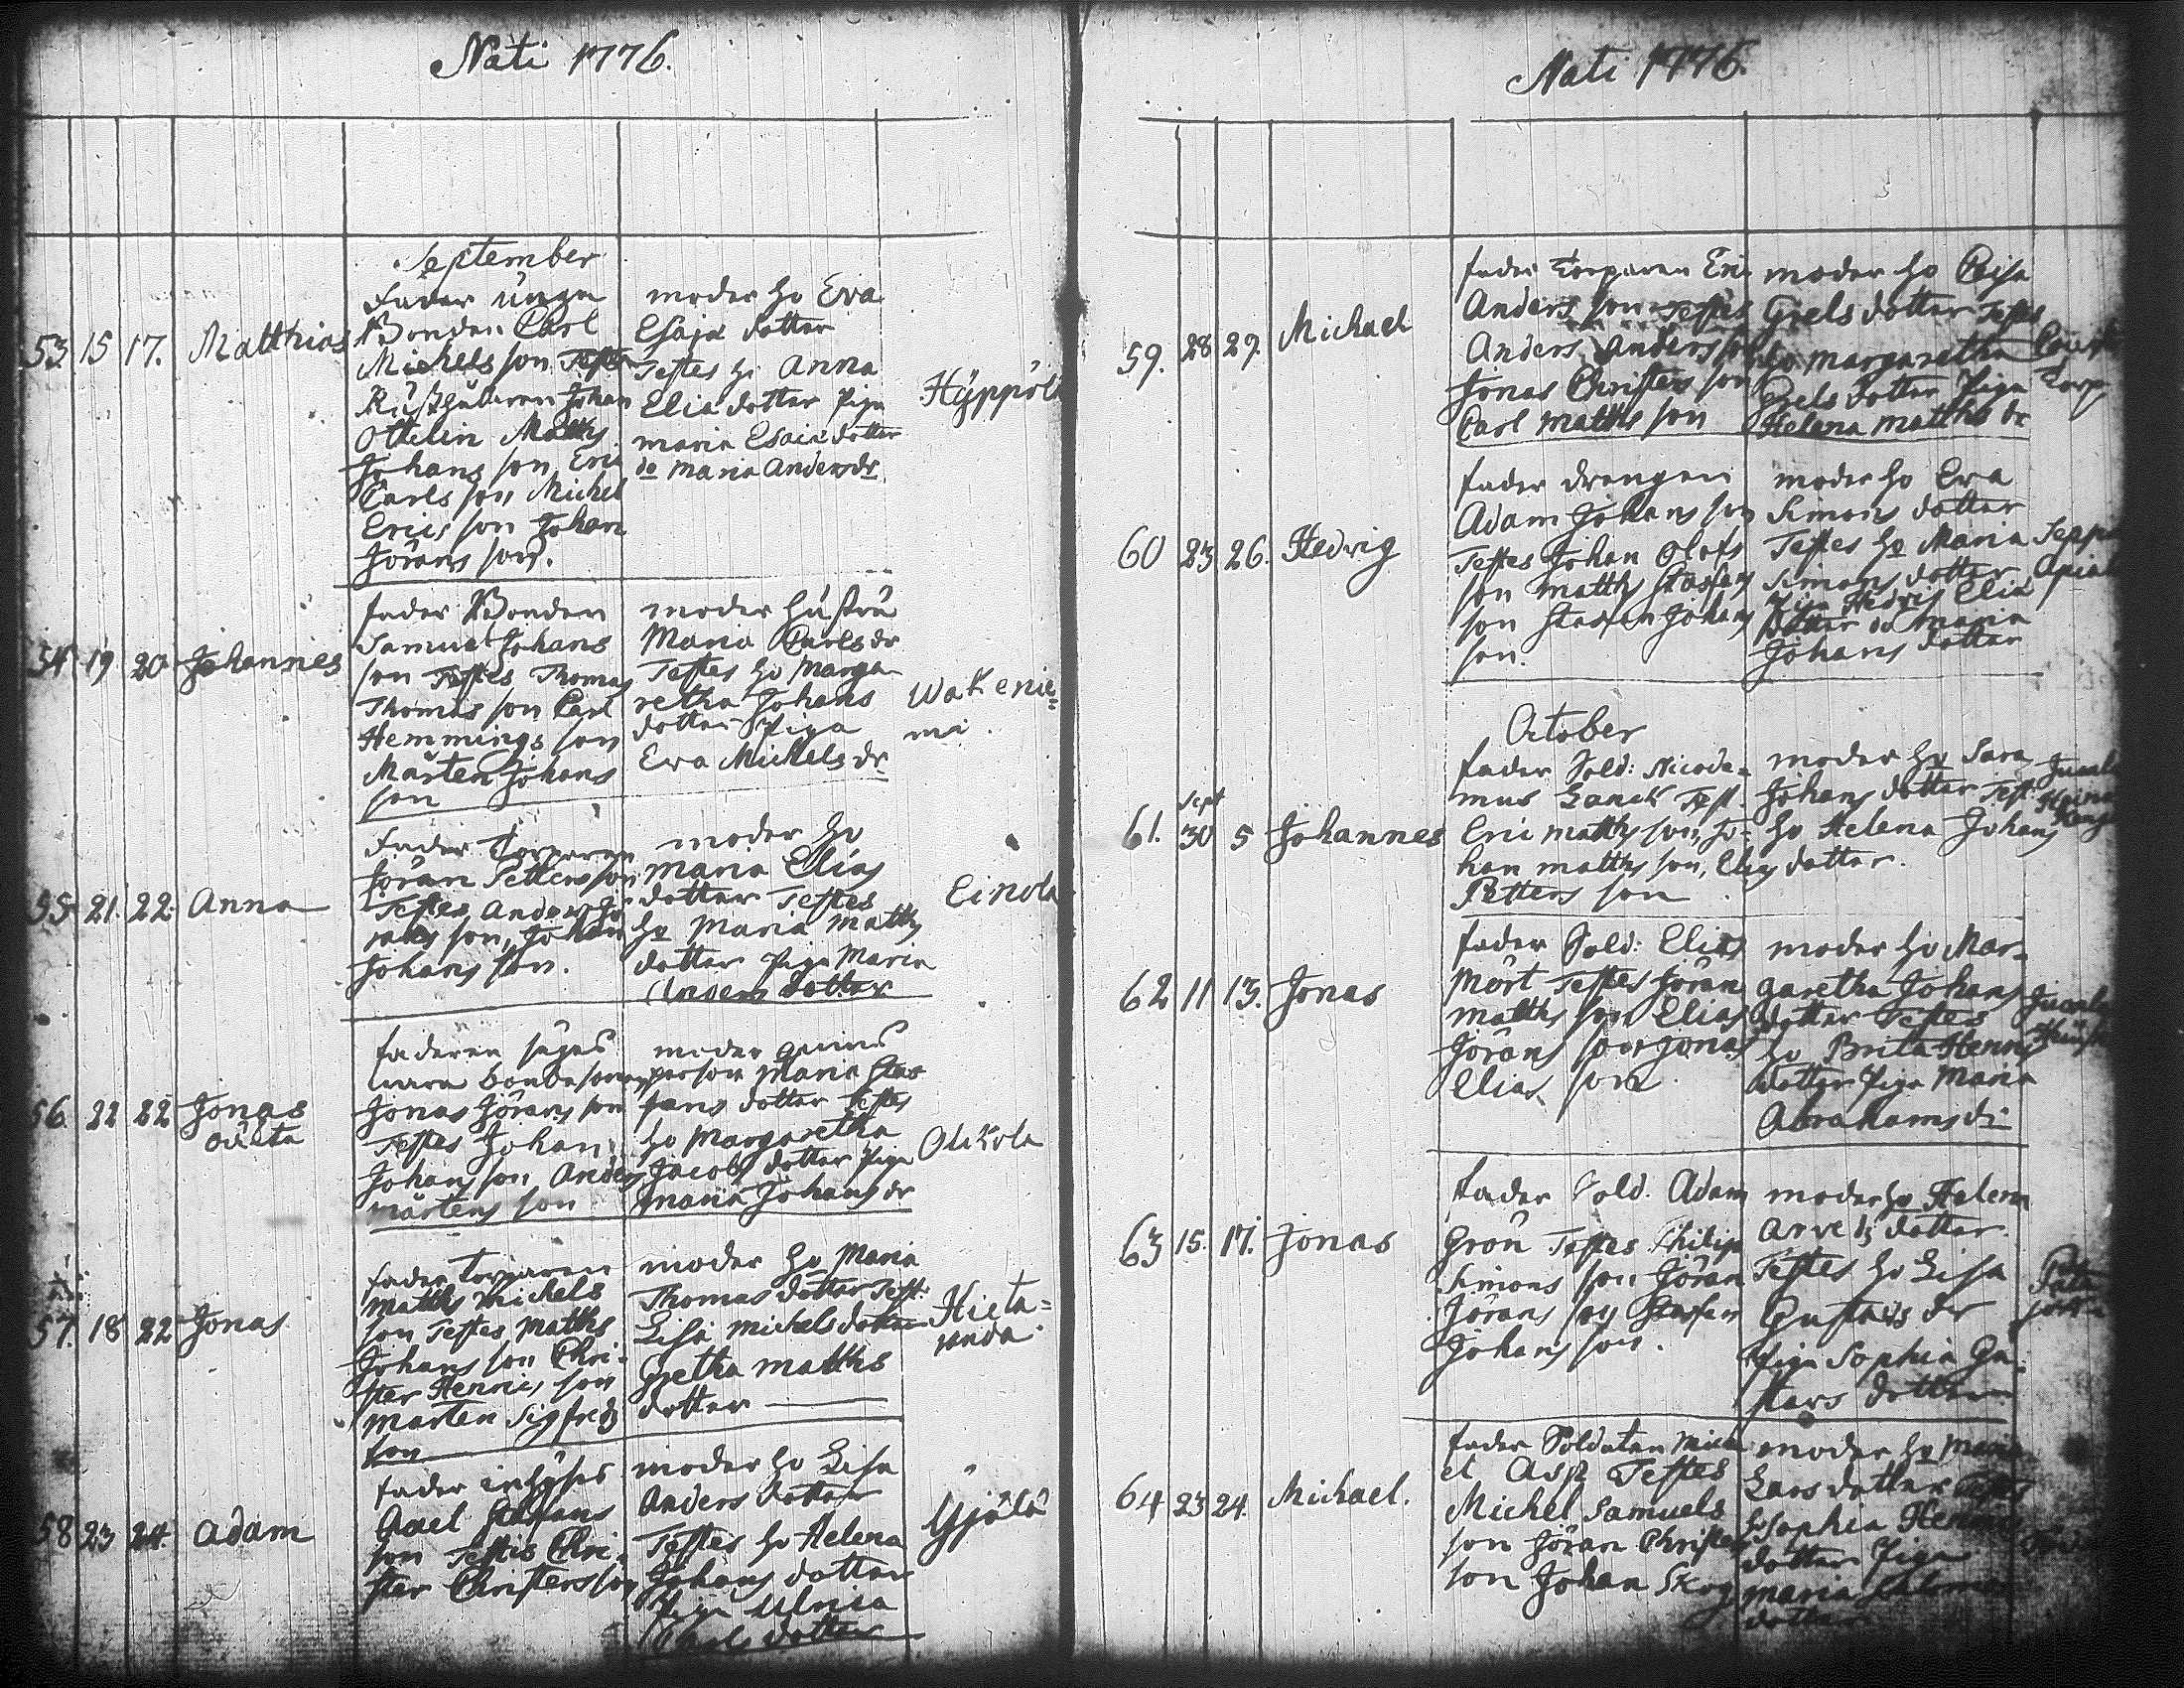 Nati 1776.
September
53 15 17. Matthias
Fader unga
Bonden Carl
Michels son Testes
Rusthålaren Johan
Ottelin Matths
Johans son Eric
Carls son Michel
Erics son Johan
Jörans son.
moder ho Eva
Esaja dotter
Testes ho Anna
Elia dotter Piga
maria Esaia dotter
do Maria Anders dr
Hyppölä
54 19 20 Johannes
fader Bonden
Samuel Johans
son Testes Thomas
Thomas son Carl
Hemmings son
Mårten Johans
son
moder hustru
Maria Carls dr
Testes ho Marga
retha Johans
dotter Piga
Eva Michels dr
Wakenie=
mi.
55 21. 22. Anna
Fader Torparen
Jöran Petters son
Testes Anders Jö
rans son, Johan
Johans son.
moder ho
maria Elias
dotter Testes
ho Maria Matths
dotter Piga Maria
Anders dotter
Einola
56. 22 22 Jonas
oäkta
faderen säges
vara bondesonen
Jonas Jörans son
Testes Johan
Johans son, Anders
mårtens son
moder quins
person Maria Stas
fans dotter Testes
ho Margaretha
Jacobs dotter Piga
maria Johans dr
Olikola
57. 18 22 Jonas
fader Torparen
Matths Michels
son Testes Matths
Johans son Chri-
ster Henrics son
mårten Sigfreds
son
moder ho Maria
Thomas dotter Test:
Lisa Michels dotter
Gretha Matths
dotter
Hieta=
58 23 24. Adam
fader inhyses
Axel Stafans
son Testis Chri-
ster Christers son
moder ho Lisa
Anders dotter
Testes ho Helena
Johans dotter
Piga Ulrica
Carls dotter
Yjälä
Nati 1776.
59. 28 29. Michael
fader Torparen Eric
Anders son Testes
Anders Anders son
Jonas Christers son
Carl Matths son
moder ho Caisa
Greels dotter Testes
ho Margaretha
Greels dotter Piga
Helena Matths dr
Torp
60 23 26. Hedvig
fader drengen
Adam Johans son
Testes Johan Olofs
son Matths Stafans
son Stafan Johans
son.
moder ho Eva
Simons dotter
Testes ho Maria
Simons dotter
Piga Hedvig Elia
dotter do Maria
Johans dotter
October
61. Sept 30 5 Johannes
fader Sold: Nicode-
mus Lanck Test.
Eric Matths son, Jo-
han Matths son, Elias
Petters son
moder ho Sara
Johans dotter Test:
ho Helena Johans
dotter.
62 11 13. Jonas
fader Sold: Elias
Mört Testes Jöran
Matths son Elias
Jörans son Jonas
Elias son
moder ho Mar-
garetha Johans
dotter Testes
ho Brita Henrics
dotter Piga Maria
Abrahams dr
63 15. 17. Jonas
fader Sold. Adam
Grön Testes Philip
Simons son Jöran
Jörans son Stafan
Johans son.
moder ho Helena
Arveds dotter.
Testes ho Lisa
Gustavs dr
Piga Sophia Gu-
stavs dotter
64 23 24. Michael.
fader Soldaten Mich
el Asp Testes
Michel Samuels
son Jöran Christers
son Johan Skog
moder ho Maria
Lars dotter Testes
ho Sophia Hemmings
dotter Piga
maria Salomons
dotter